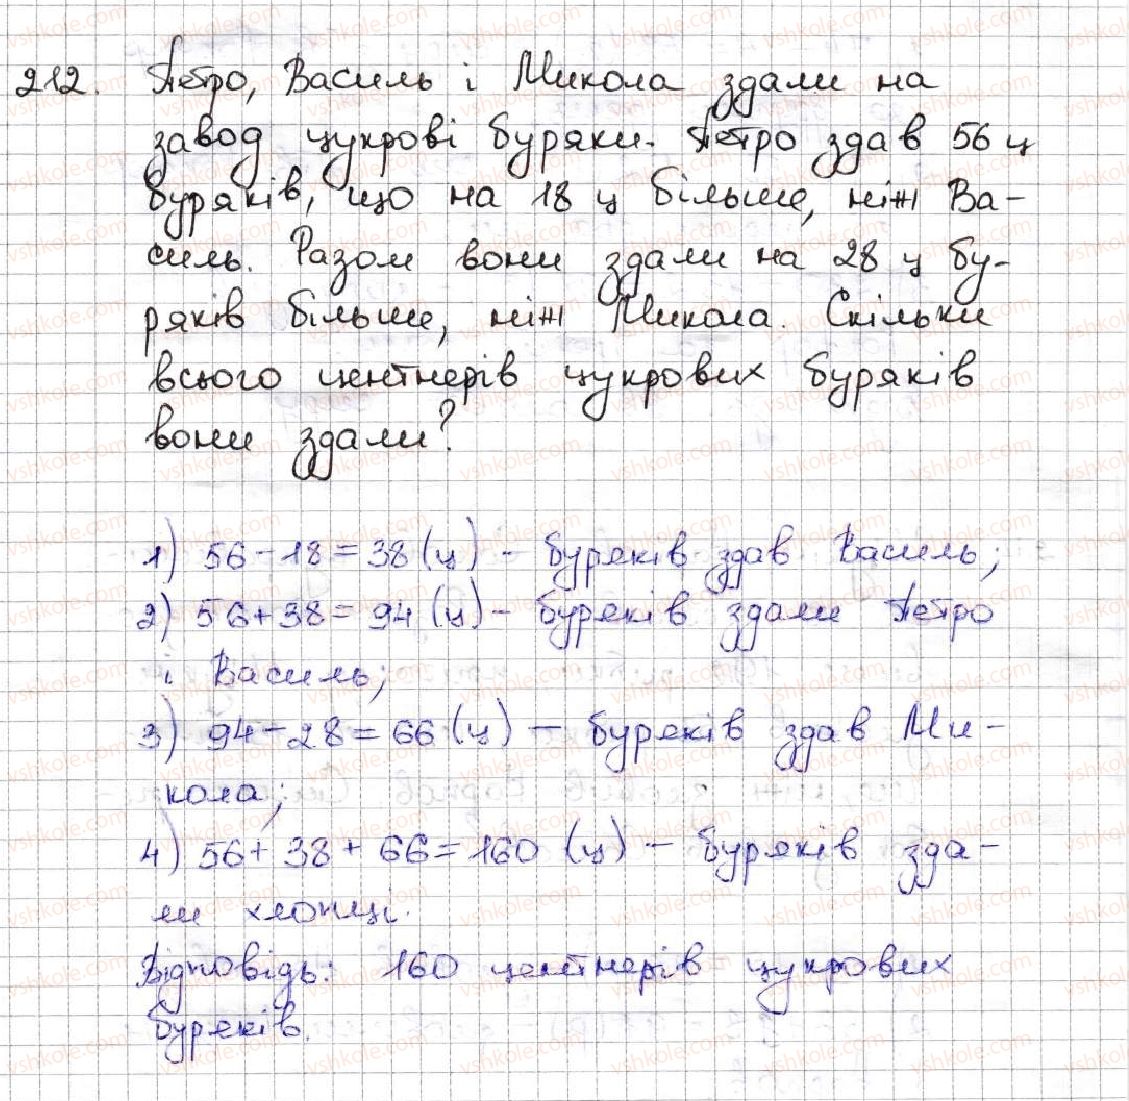 212. Петро, Василь і Микола здали на
завод цукрові буряки. Петро здав 56 ц
буряків, що на 18 ц більше, ніж Ва-
силь. Разом вони здали на 28 ц бу-
ряків більше, ніж Микола. Скільки
всього центнерів цукрових буряків
вони здали?
1) 56 - 18 = 38 (ц) - буряків здав Василь;
2) 56 + 38 = 94 (ц) - буряків здали Петро
і Василь;
3) 94 - 28 = 66 (ц) - буряків здав Ми-
кола;
4) 56 + 38 + 66 = 160 (ц) - буряків зда-
ли хлопці.
Відповідь: 160 центнерів цукрових
буряків.